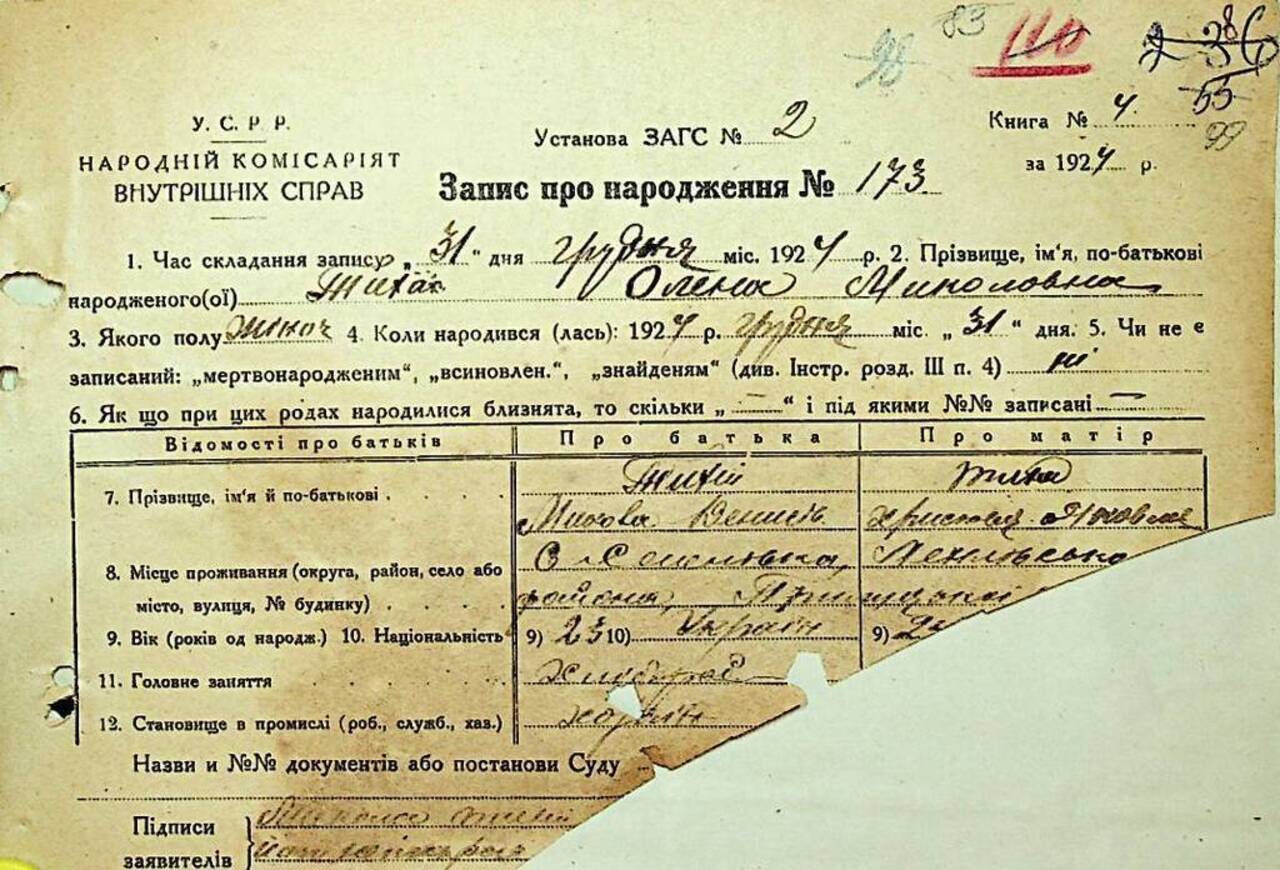 83
98
110
2 38
6
У. С. Р. Р.
Установа ЗАГС № 2
Книга № 4
55
99
НАРОДНІЙ КОМІСАРІЯТ
за 1924 р.
ВНУТРІШНІХ СПРАВ
Запис про народження № 173
1. Час складання запису „ 31 " дня грудня міс. 1924 р. 2. Прізвище, ім'я, по-батькові
народженого(ої) Тиха Олена Миколовна
3. Якого полу жіноч 4. Коли народився (лась): 1924 р. грудня міс. „ 31 " дня. 5. Чи не є
записаний: „мертвонародженим", „всиновлен.", „знайденям" (див. Інстр. розд. III п. 4) ні
6. Як що при цих родах народилися близнята, то скільки „ — " і під якими №№ записані —
Відомості про батьків Про батька Про матір
7. Прізвище, ім'я й по-батькові Тихій Тиха
Микола Денисів Христя Яковля
8. Місце проживання (округа, район, село або
місто, вулиця, № будинку) района,
9. Вік (років од народж.) 10. Національність 9) 23 10) Україн 9)
11. Головне заняття Хлібороб
12. Становище в промислі (роб., служб., хаз.) хазяїн
Назви и №№ документів або постанови Суду
Підписи Микола Тихій
заявителів